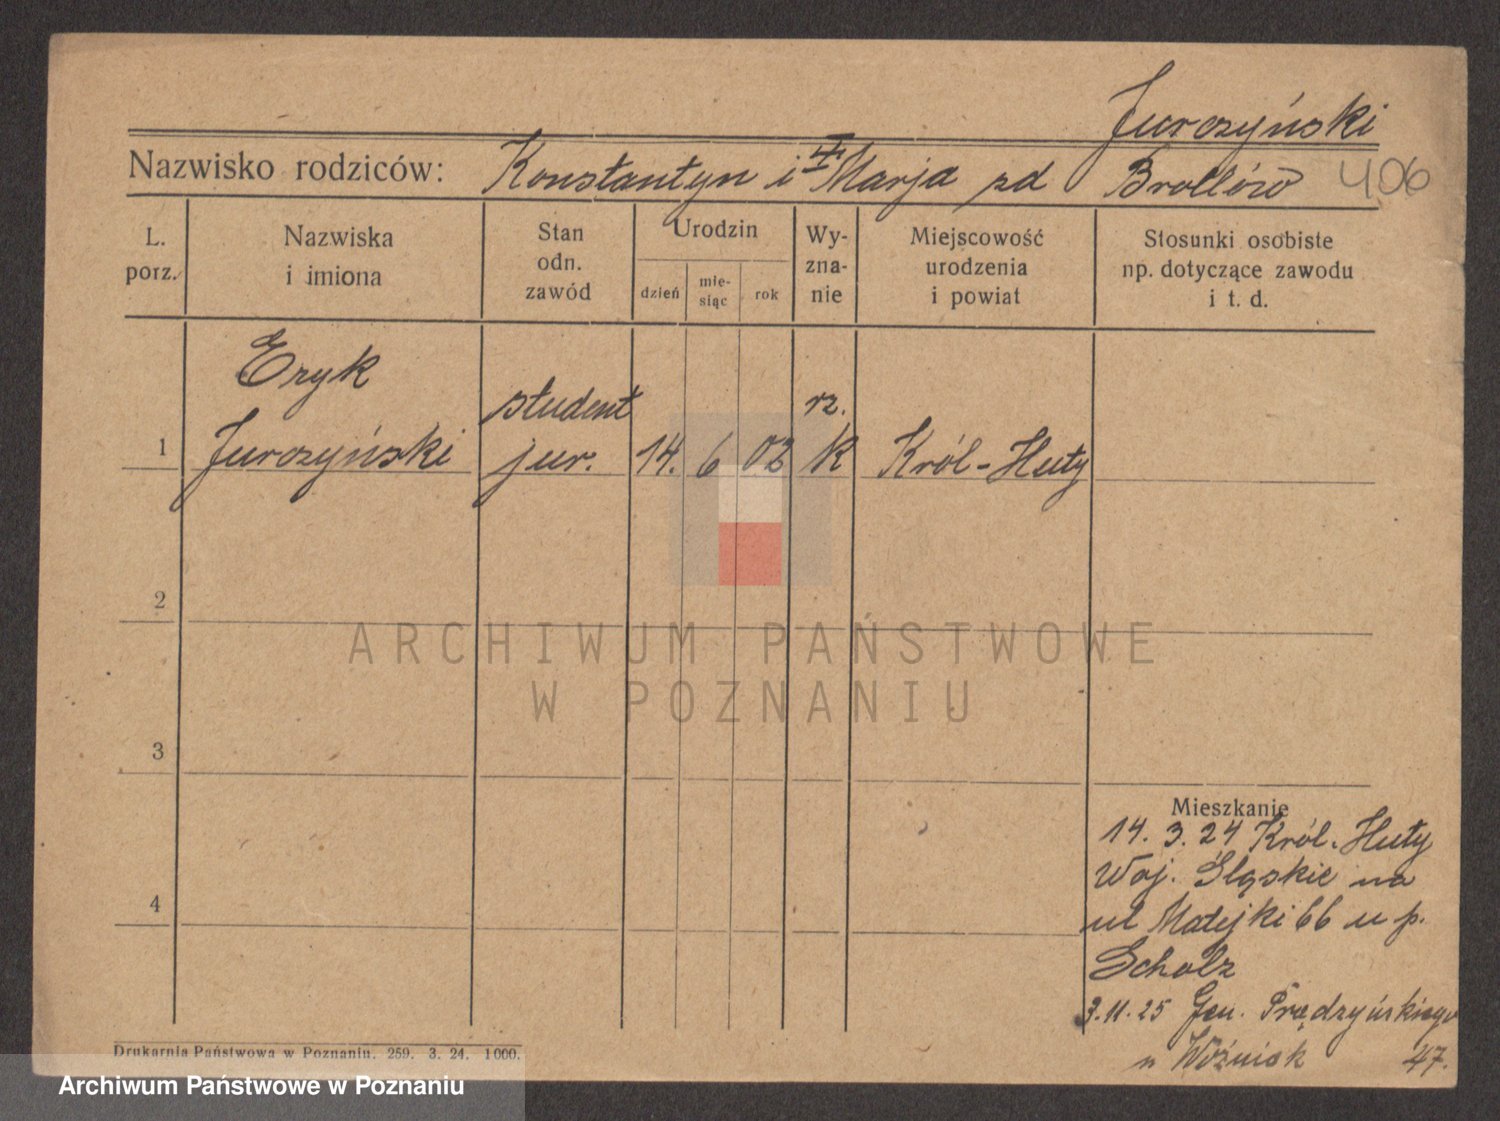 Jurczyński
Nazwisko rodziców: Konstantyn i Marja zd Brollów 406
L. porz.
Nazwiska i imiona
Stan odn. zawód
Urodzin
dzień
mie-siąc
rok
Wy-zna-nie
Miejscowość urodzenia i powiat
Stosunki osobiste np. dotyczące zawodu i t. d.
Eryk
student rz.
1 Jurczyński jur. 14. 6 02 k Król-Huty
2
3
4
Mieszkanie
14. 3. 24 Król. Huty
Woj. Śląskie na
ul Matejki 66 u p.
Scholz
3.11.25 Gen. Prądzyńskiego
u Woźniak 47.
Drukarnia Państwowa w Poznaniu. 259. 3. 24. 1000.
ARCHIWUM PAŃSTWOWE
W POZNANIU
Archiwum Państwowe w Poznaniu